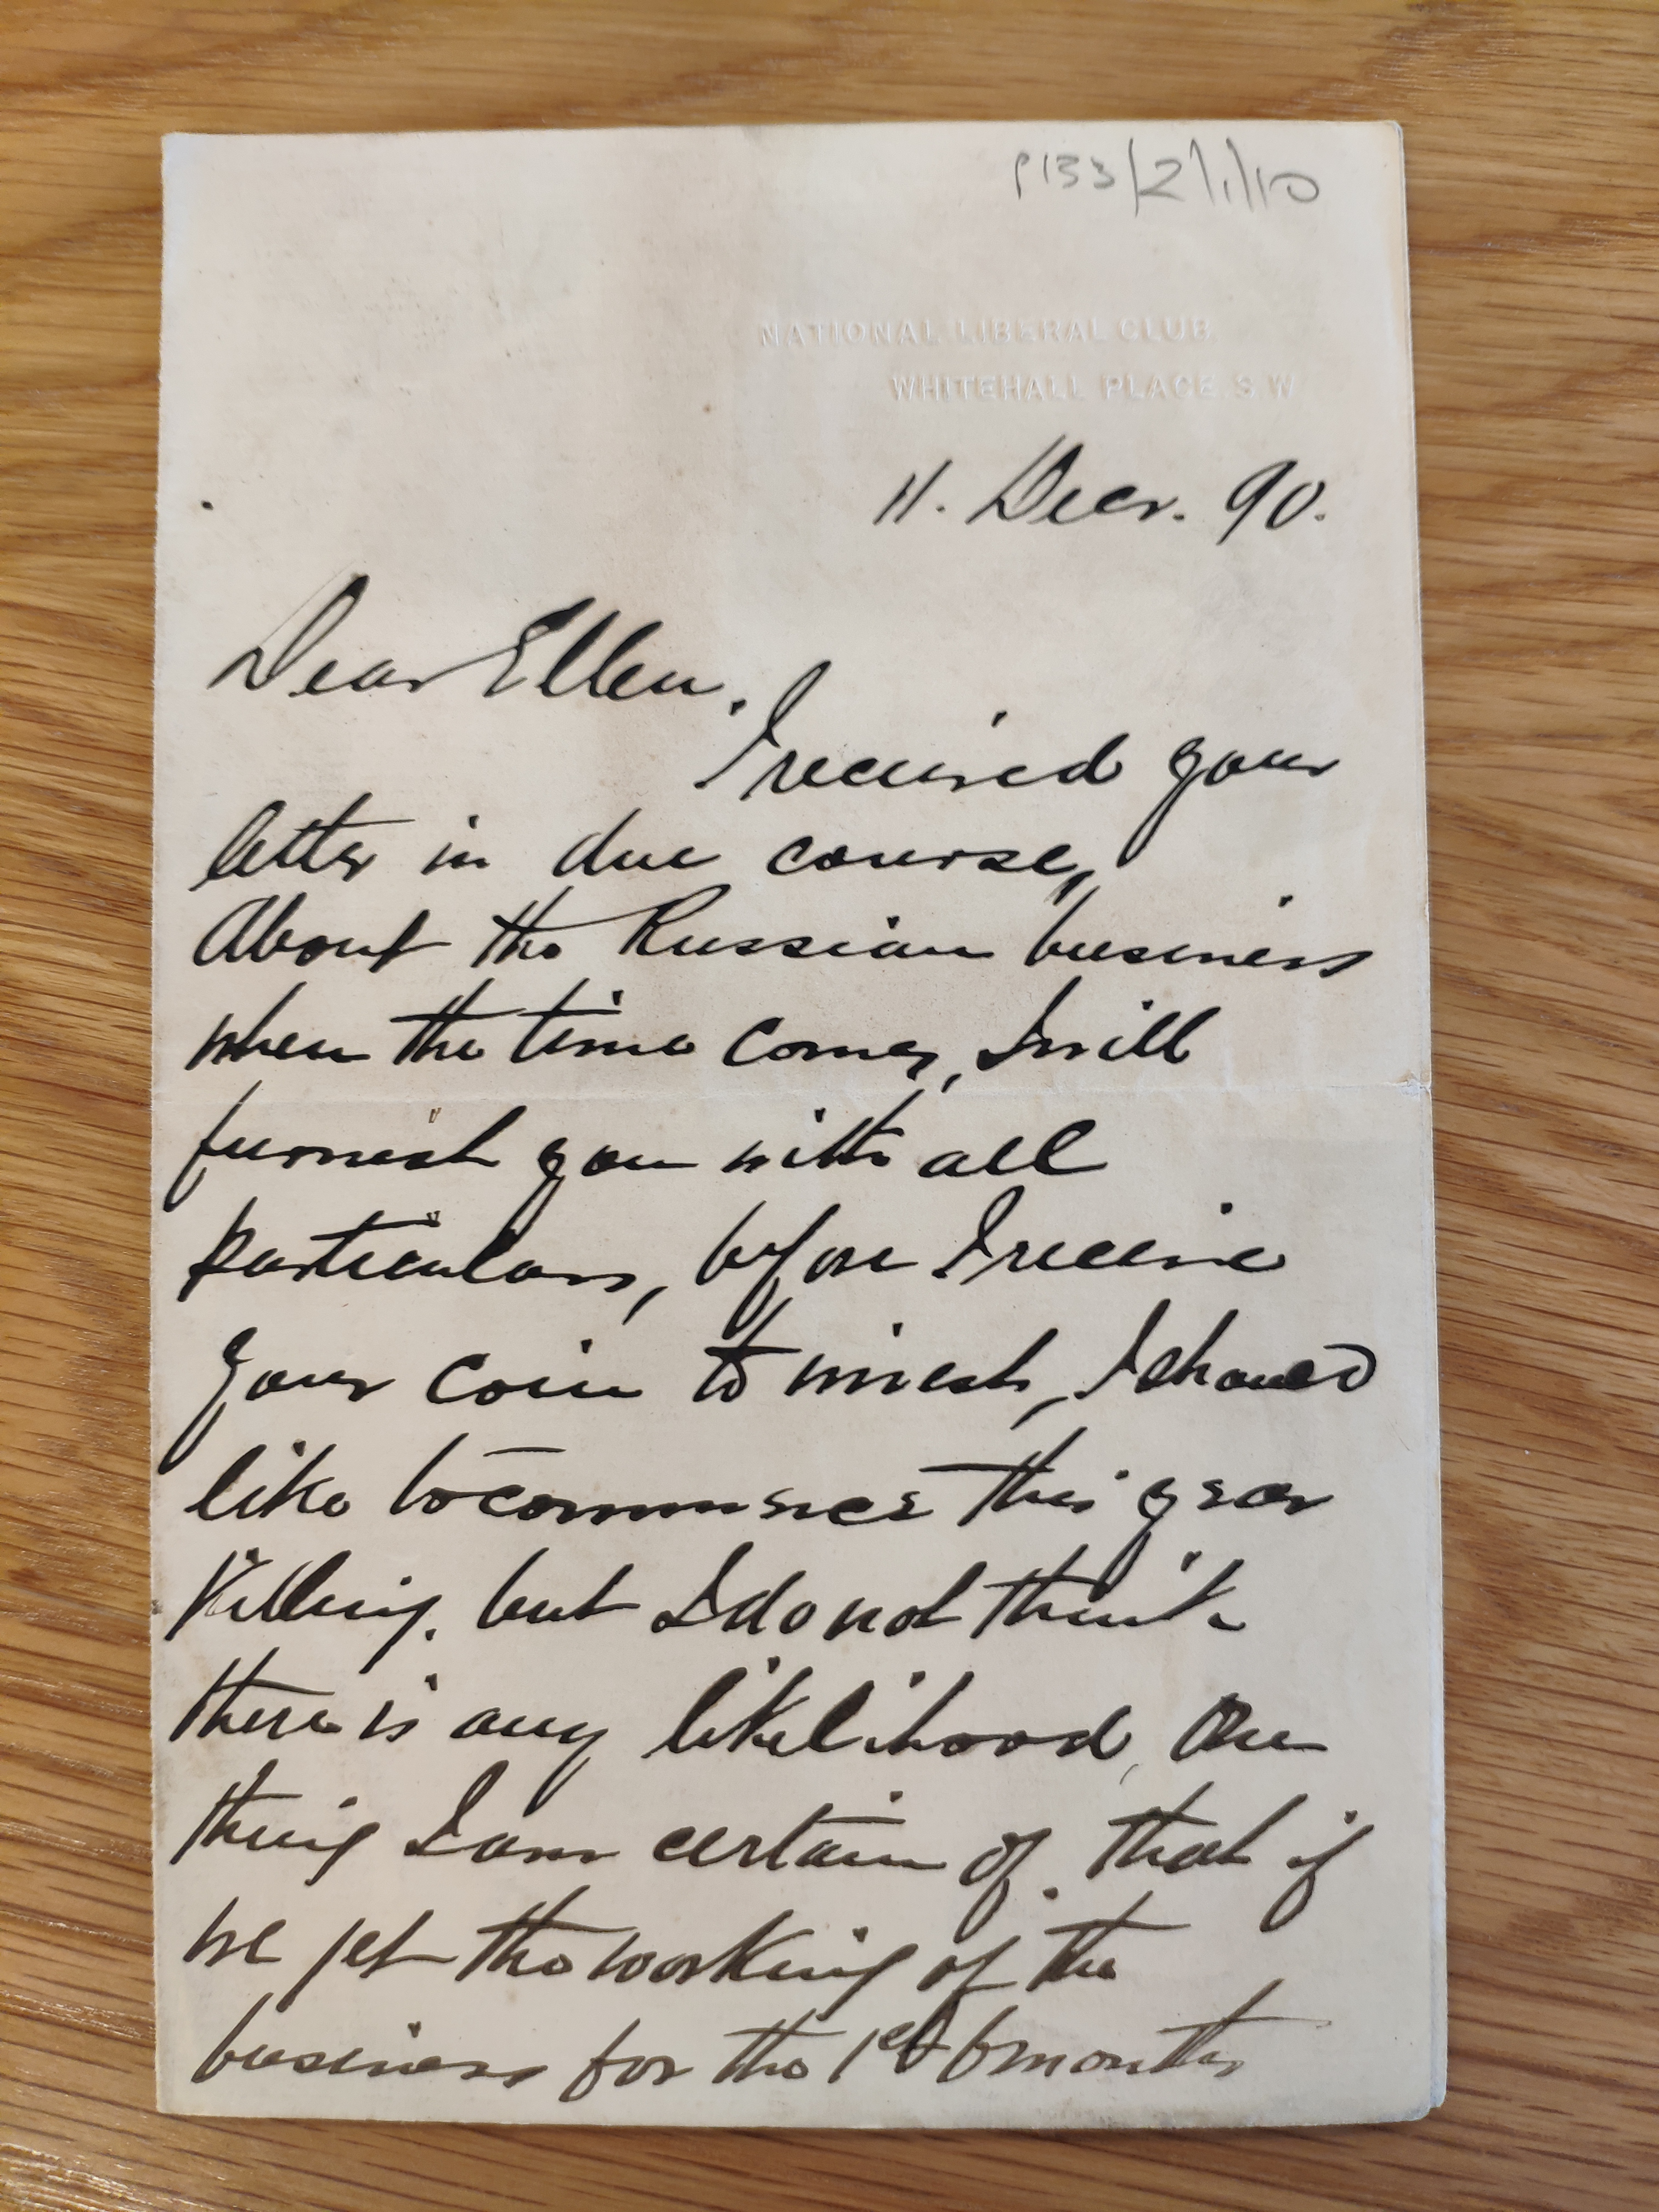 P133/2/1/10
NATIONAL LIBERAL CLUB
WHITEHALL PLACE. S W
11. Decr. 90.
Dear Ellen.
I received your
letter in due course,
About the Russian business
when the time comes, I will
furnish you with all
particulars, before I receive
your coin to invest, I should
like to commence this year
Killing, but I do not think
there is any likelihood, One
thing I am certain of. that if
we get the working of the
business for the 1st 6 months